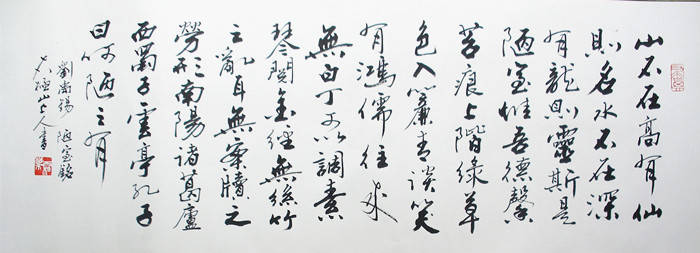 山不在高有仙
則名水不在深
有龍則靈斯是
陋室惟吾德馨
苔痕上階綠草
色入簾青談笑
有鴻儒往來
無白丁可以調素
琴閱金經無絲竹
之亂耳無案牘之
勞形南陽諸葛廬
西蜀子雲亭孔子
曰何陋之有
劉禹錫 陋室銘
山上人書